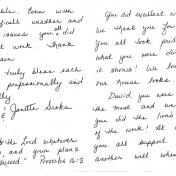 ble. Even with
ficult weather and
issues you all did
t work. Thank
truly bless each
professionally and
lly.
& Janette
to the Lord whatever
and your plans
succeed." Proverbs 16:3
You did excellent w
we thank you for
You all took pride
what you were doin
it shows! We lov
our house looks.
David, you were
the most and we
you did the lion's
of the work! It w
you all support
another well when